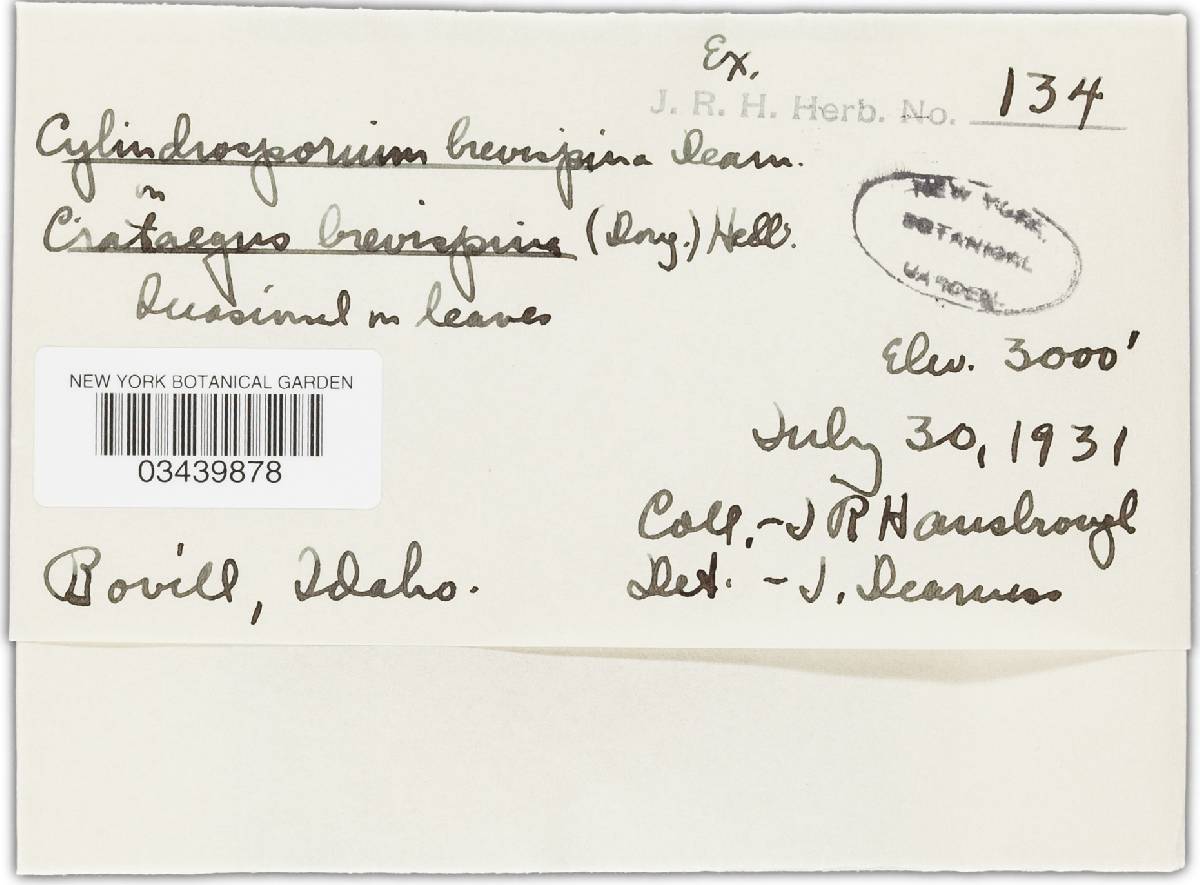 Ex.
J. R. H. Herb. No. 134
Cylindrosporium brevispina Dearn.
on
Crataegus brevispina (Doug.) Hell.
Occasional on leaves
NEW YORK
BOTANICAL
GARDEN
Elev. 3000'
NEW YORK BOTANICAL GARDEN
03439878
July 30, 1931
Coll. - J R Hansbrough
Bovill, Idaho.
Det. - J. Dearness